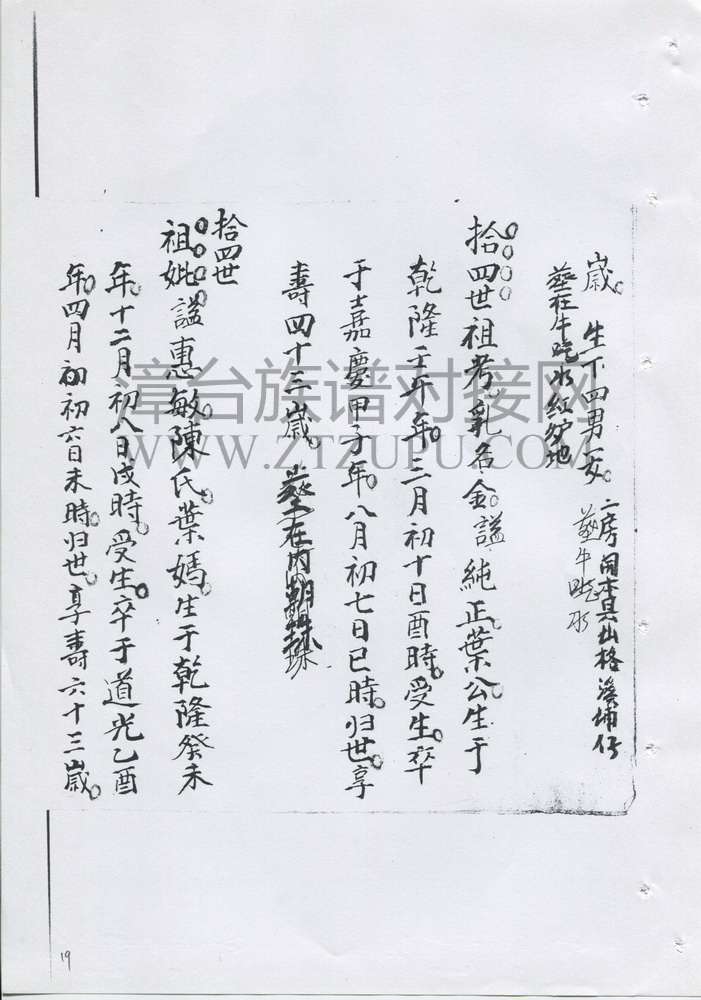 歲。生下四男一女。二房開本具山格溪埔仔
葬在牛吃水紅炉地
葬牛吃水
拾四世祖考。乳名金謚純正葉公。生于
乾隆壬午年。三月初十日酉時。受生。卒
于嘉慶甲子年。八月初七日巳時。归世。享
壽四十三歲。葬在內
拾四世
祖妣謚惠敏。陳氏。葉媽。生于乾隆癸未
年。十二月初八日戌時。受生。卒于道光乙酉
年。四月初初六日未時。归世。享壽六十三歲。
漳台族谱对接网
WWW.ZTZUPU.COM
19